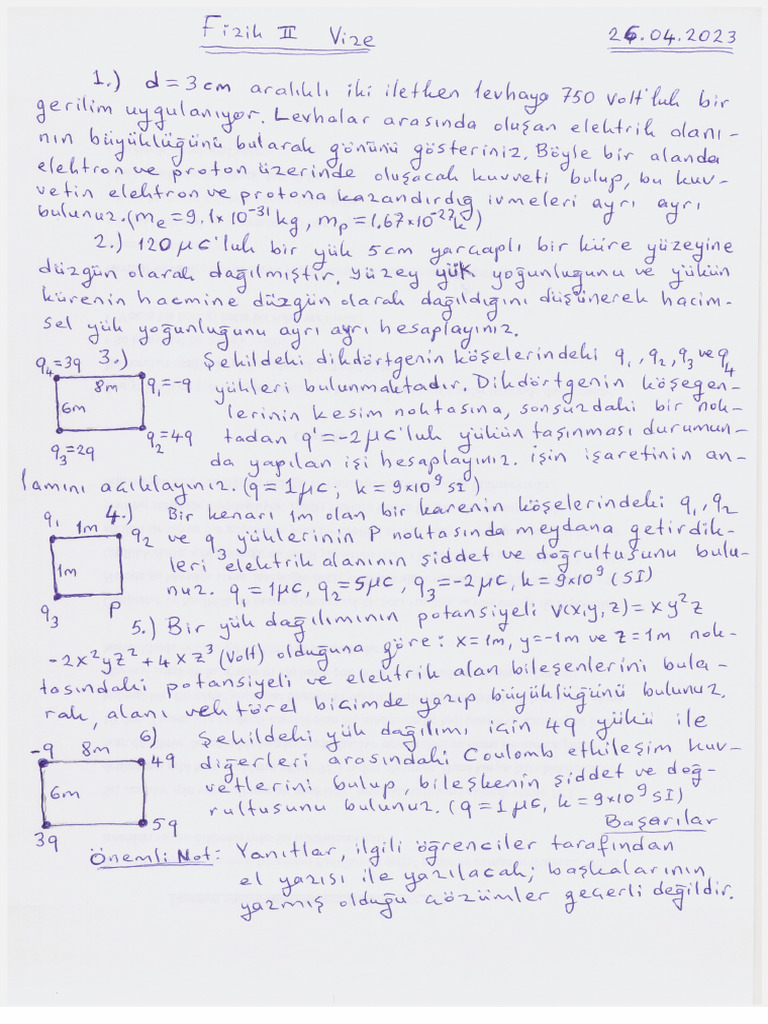 Fizik II Vize 26.04.2023
1.) d = 3 cm aralıklı iki iletken levhaya 750 volt'luk bir
gerilim uygulanıyor. Levhalar arasında oluşan elektrik alanı-
nın büyüklüğünü bularak yönünü gösteriniz. Böyle bir alanda
elektron ve proton üzerinde oluşacak kuvveti bulup, bu kuv-
vetin elektron ve protona kazandırdıg ivmeleri ayrı ayrı
bulunuz. (me = 9,1x10⁻³¹ kg, mp = 1,67x10⁻²⁷ k)
2.) 120 μC'luk bir yük 5cm yarıçaplı bir küre yüzeyine
düzgün olarak dağılmıştır. Yüzey yük yoğunluğunu ve yükün
kürenin hacmine düzgün olarak dağıldığını düşünerek hacim-
sel yük yoğunluğunu ayrı ayrı hesaplayınız.
q₄=3q 3.) Şekildeki dikdörtgenin köşelerindeki q₁, q₂, q₃ ve q₄
8m q₁=-q yükleri bulunmaktadır. Dikdörtgenin köşegen-
6m lerinin kesim noktasına, sonsuzdaki bir nok-
q₃=2q q₂=4q tadan q'=-2μC'luk yükün taşınması durumun-
da yapılan işi hesaplayınız. işin işaretinin an-
lamını açıklayınız. (q = 1μC; k = 9x10⁹ SI)
q₁ 1m 4.) Bir kenarı 1m olan bir karenin köşelerindeki q₁, q₂
q₂ ve q₃ yüklerinin P noktasında meydana getirdik-
1m leri elektrik alanının şiddet ve doğrultusunu bulu-
q₃ P nuz. q₁ = 1μC, q₂ = 5μC, q₃ = -2μC, k = 9x10⁹ (SI)
5.) Bir yük dağılımının potansiyeli V(x,y,z) = xy²z
-2x²yz² + 4xz³ (Volt) olduğuna göre: x=1m, y=-1m ve z=1m nok-
tasındaki potansiyeli ve elektrik alan bileşenlerini bula-
rak, alanı vektörel biçimde yazıp büyüklüğünü bulunuz.
6) Şekildeki yük dağılımı için 4q yükü ile
-q 8m 4q diğerleri arasındaki Coulomb etkileşim kuv-
6m vetlerini bulup, bileşkenin şiddet ve doğ-
3q 5q rultusunu bulunuz. (q = 1μC, k = 9x10⁹ SI)
Başarılar
Önemli Not: Yanıtlar, ilgili öğrenciler tarafından
el yazısı ile yazılacak; başkalarının
yazmış olduğu çözümler geçerli değildir.